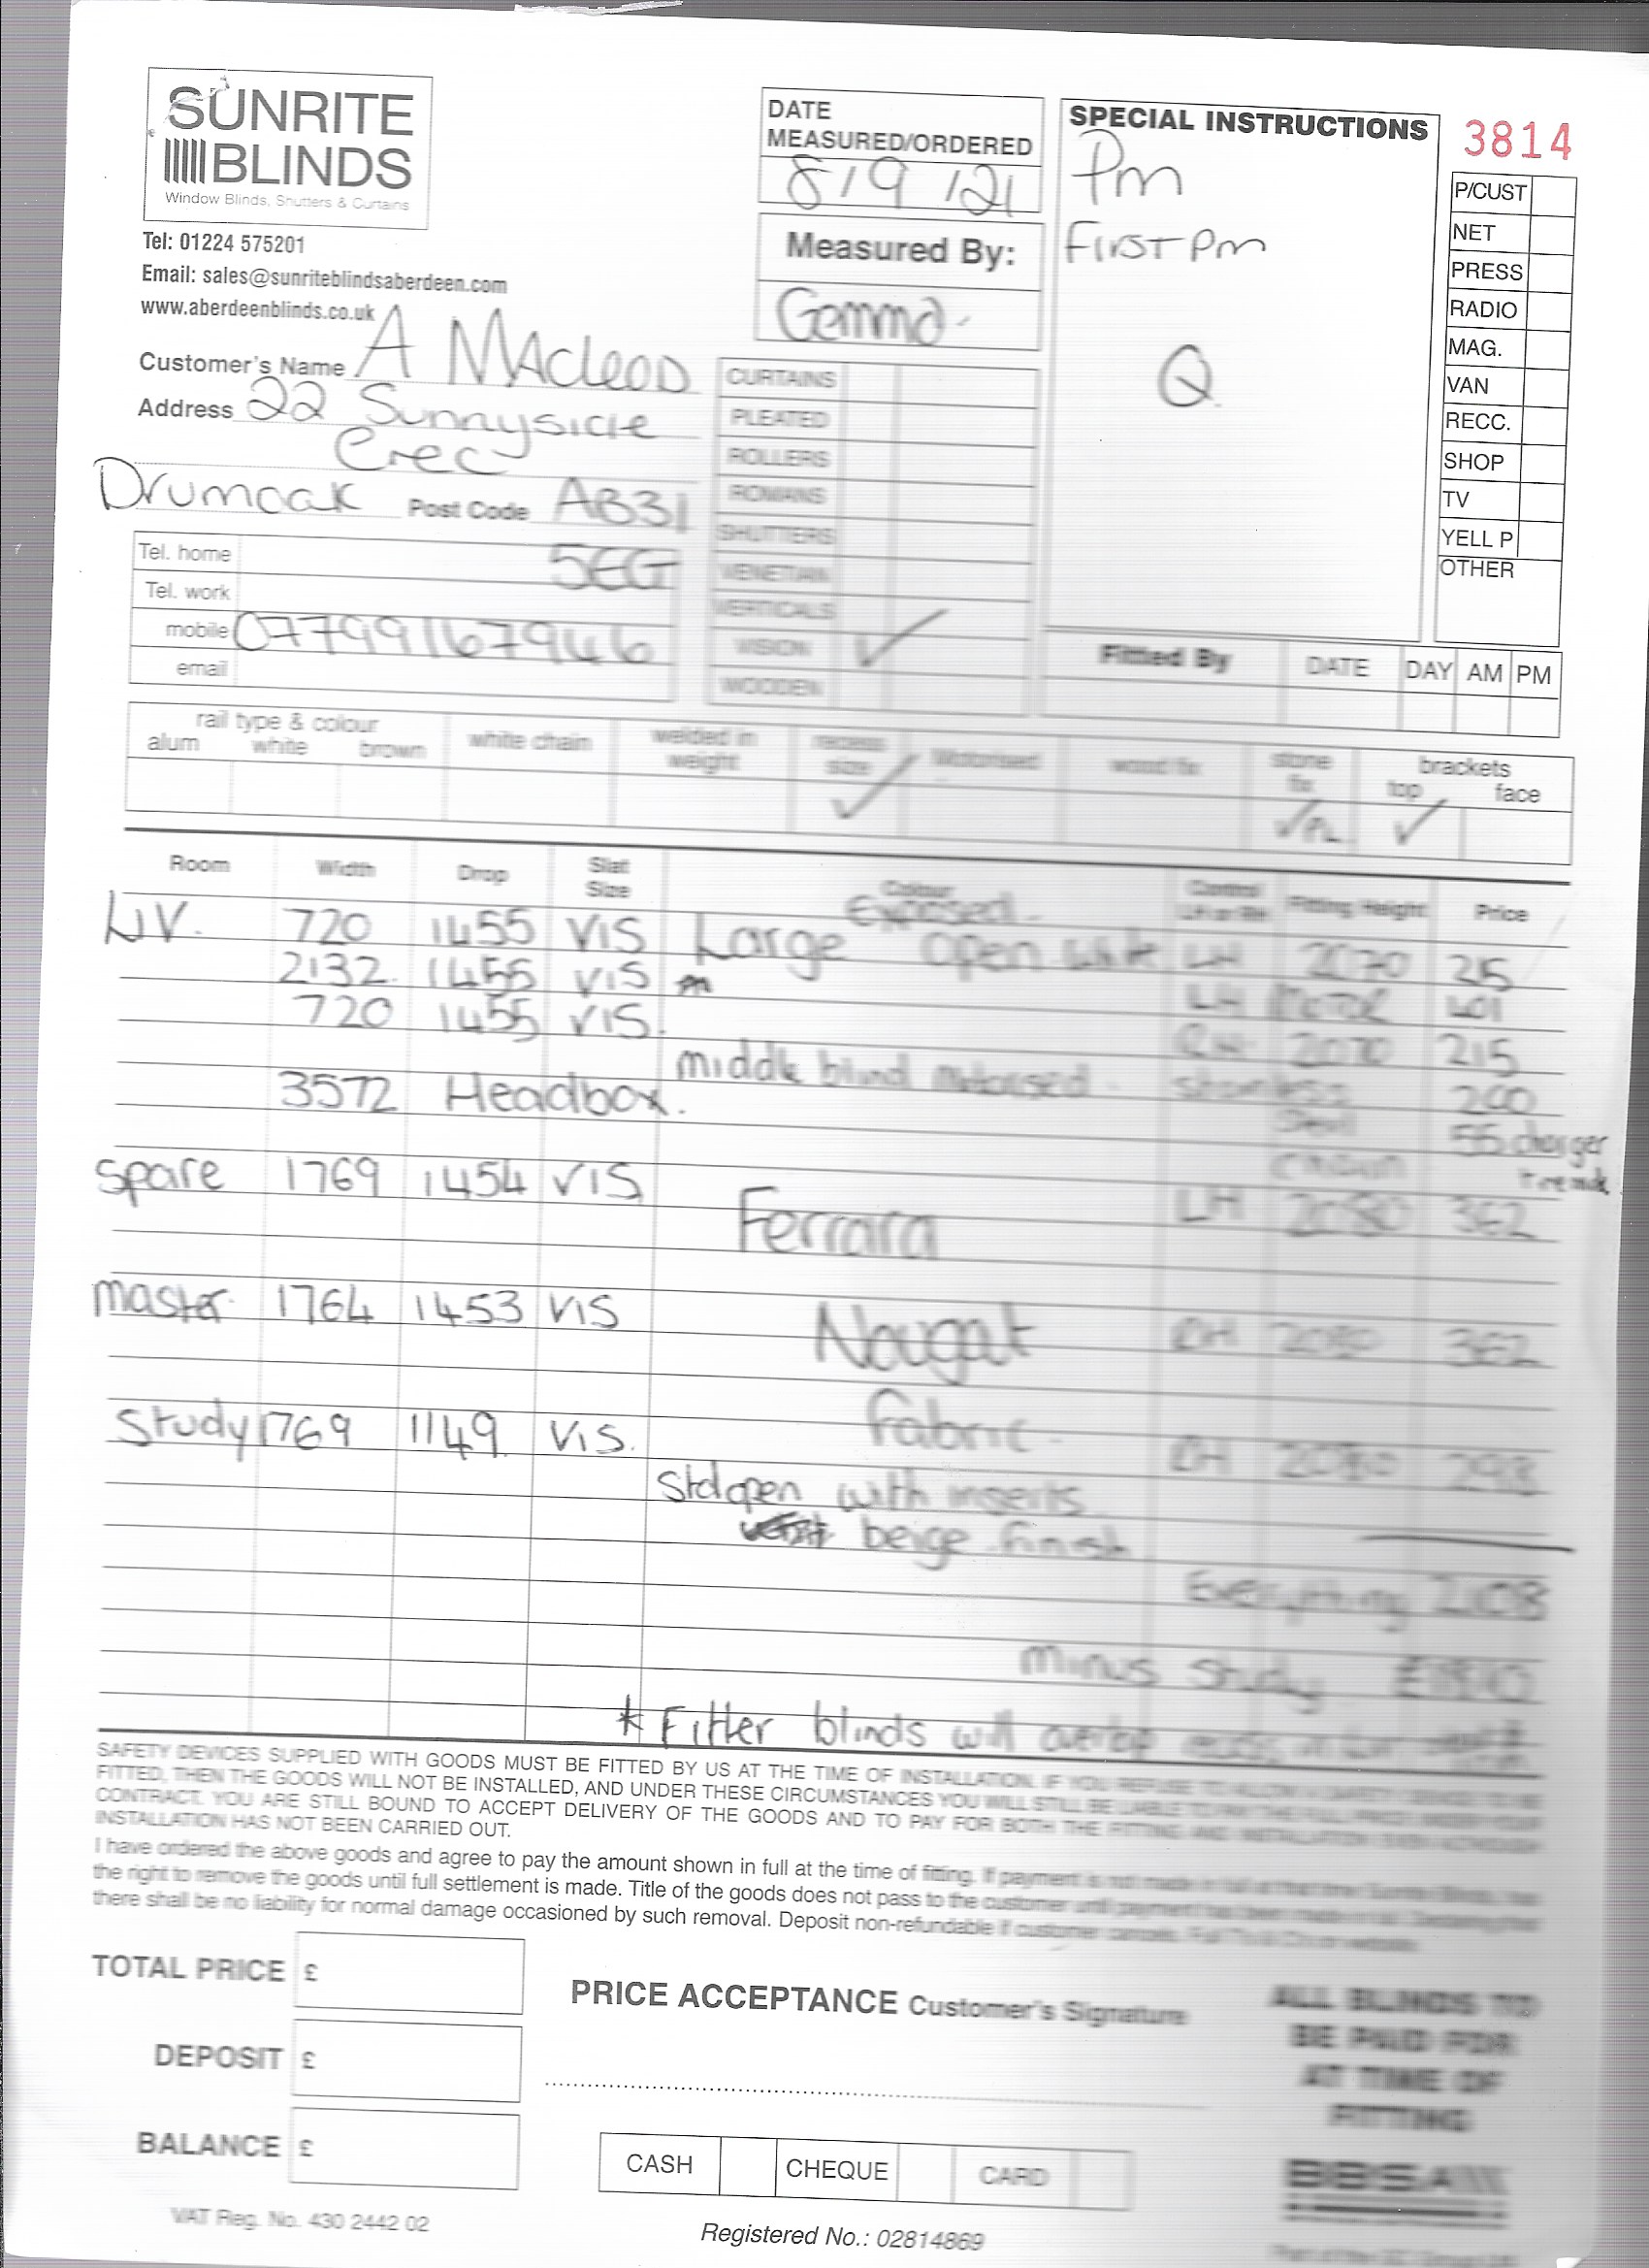 SUNRITE
BLINDS
Window Blinds, Shutters & Curtains
Tel: 01224 575201
Email: sales@sunriteblindsaberdeen.com
www.aberdeenblinds.co.uk
DATE
MEASURED/ORDERED
8/9/21
Measured By:
Gemma
SPECIAL INSTRUCTIONS
Pm
FIRST Pm
Q
3814
P/CUST
NET
PRESS
RADIO
MAG.
VAN
RECC.
SHOP
TV
YELL P
OTHER
Customer's Name A MAcleoD
Address 22 Sunnyside
Cres
Drumoak Post Code AB31
5EG
Tel. home
Tel. work
mobile 07799167946
email
CURTAINS
PLEATED
ROLLERS
ROMANS
SHUTTERS
VENETIAN
VERTICALS
VISION ✓
WOODEN
Fitted By DATE DAY AM PM
rail type & colour
alum white brown
white chain
welded in
weight
recess
size ✓
Motorised
wood fix
stone
fix ✓PL.
brackets
top ✓ face
Room Width Drop Slat Size Colour Control LH or RH Fitting Height Price
Exposed
LIV. 720 1455 VIS Large open white LH 2070 215
2132 1455 VIS m LH 401
720 1455 VIS. RH 2070 215
middle blind motorised
3572 Headbox. 200
55 charger
Spare 1769 1454 VIS Ferrara LH 2080 362
master 1764 1453 VIS Nougat RH 2080 362
Study 1769 1149 VIS. Fabric RH 2080 298
Std open with inserts
beige finish
Everything 2108
minus study £1810
* Fitter blinds will overlap
SAFETY DEVICES SUPPLIED WITH GOODS MUST BE FITTED BY US AT THE TIME OF INSTALLATION. IF YOU REFUSE TO ALLOW
FITTED, THEN THE GOODS WILL NOT BE INSTALLED, AND UNDER THESE CIRCUMSTANCES YOU WILL STILL BE LIABLE TO PAY THE FULL PRICE UNDER YOUR
CONTRACT. YOU ARE STILL BOUND TO ACCEPT DELIVERY OF THE GOODS AND TO PAY FOR BOTH THE FITTING AND INSTALLATION EVEN ALTHOUGH
INSTALLATION HAS NOT BEEN CARRIED OUT.
I have ordered the above goods and agree to pay the amount shown in full at the time of fitting. If payment is not made in full at that time Sunrite Blinds, has
the right to remove the goods until full settlement is made. Title of the goods does not pass to the customer until payment has been made in full.
there shall be no liability for normal damage occasioned by such removal. Deposit non-refundable if customer cancels.
TOTAL PRICE £
DEPOSIT £
BALANCE £
PRICE ACCEPTANCE Customer's Signature
ALL BLINDS TO
BE PAID FOR
AT TIME OF
FITTING
CASH CHEQUE CARD
BBSA
VAT Reg. No. 430 2442 02
Registered No.: 02814869